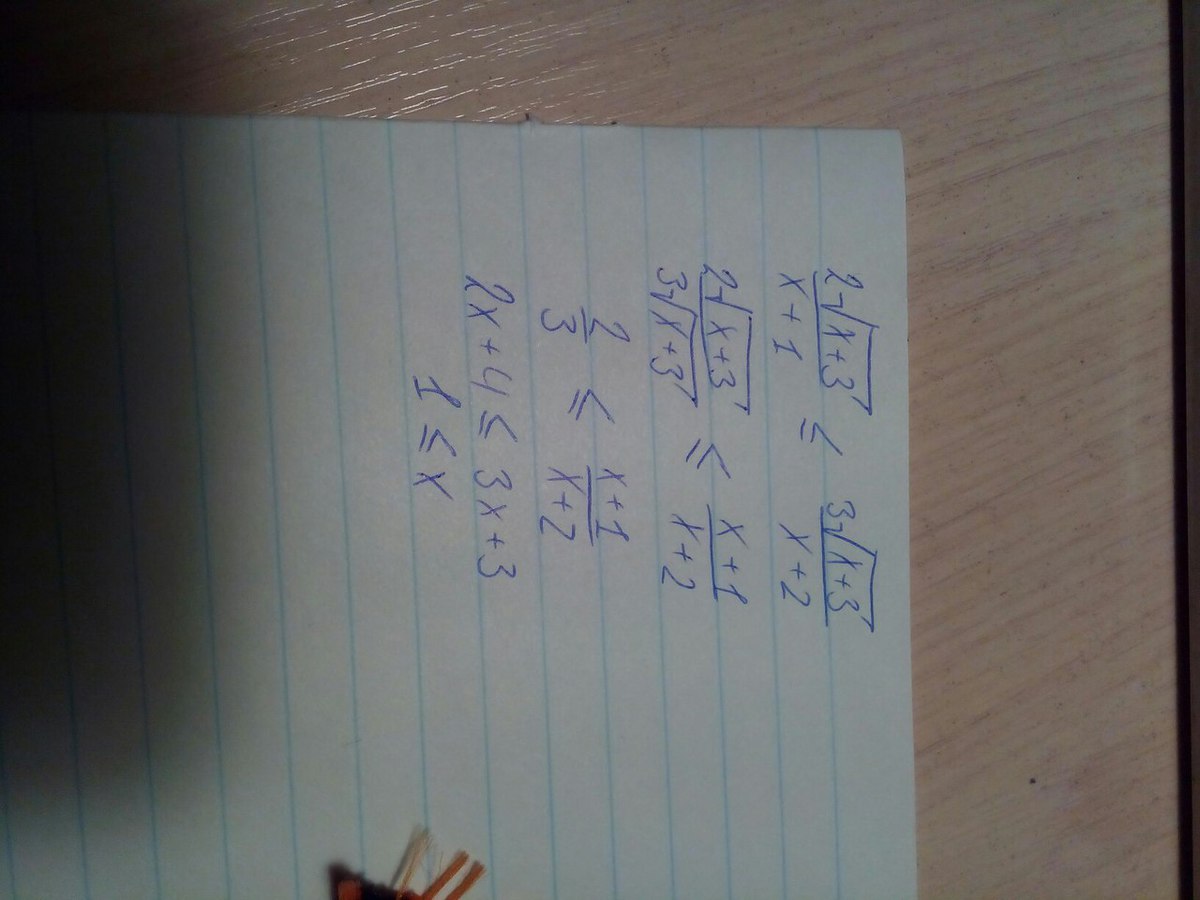 2√(x+3)/(x+1) ≤ 3√(x+3)/(x+2)
2√(x+3)/3√(x+3) ≤ (x+1)/(x+2)
2/3 ≤ (x+1)/(x+2)
2x+4 ≤ 3x+3
1 ≤ x